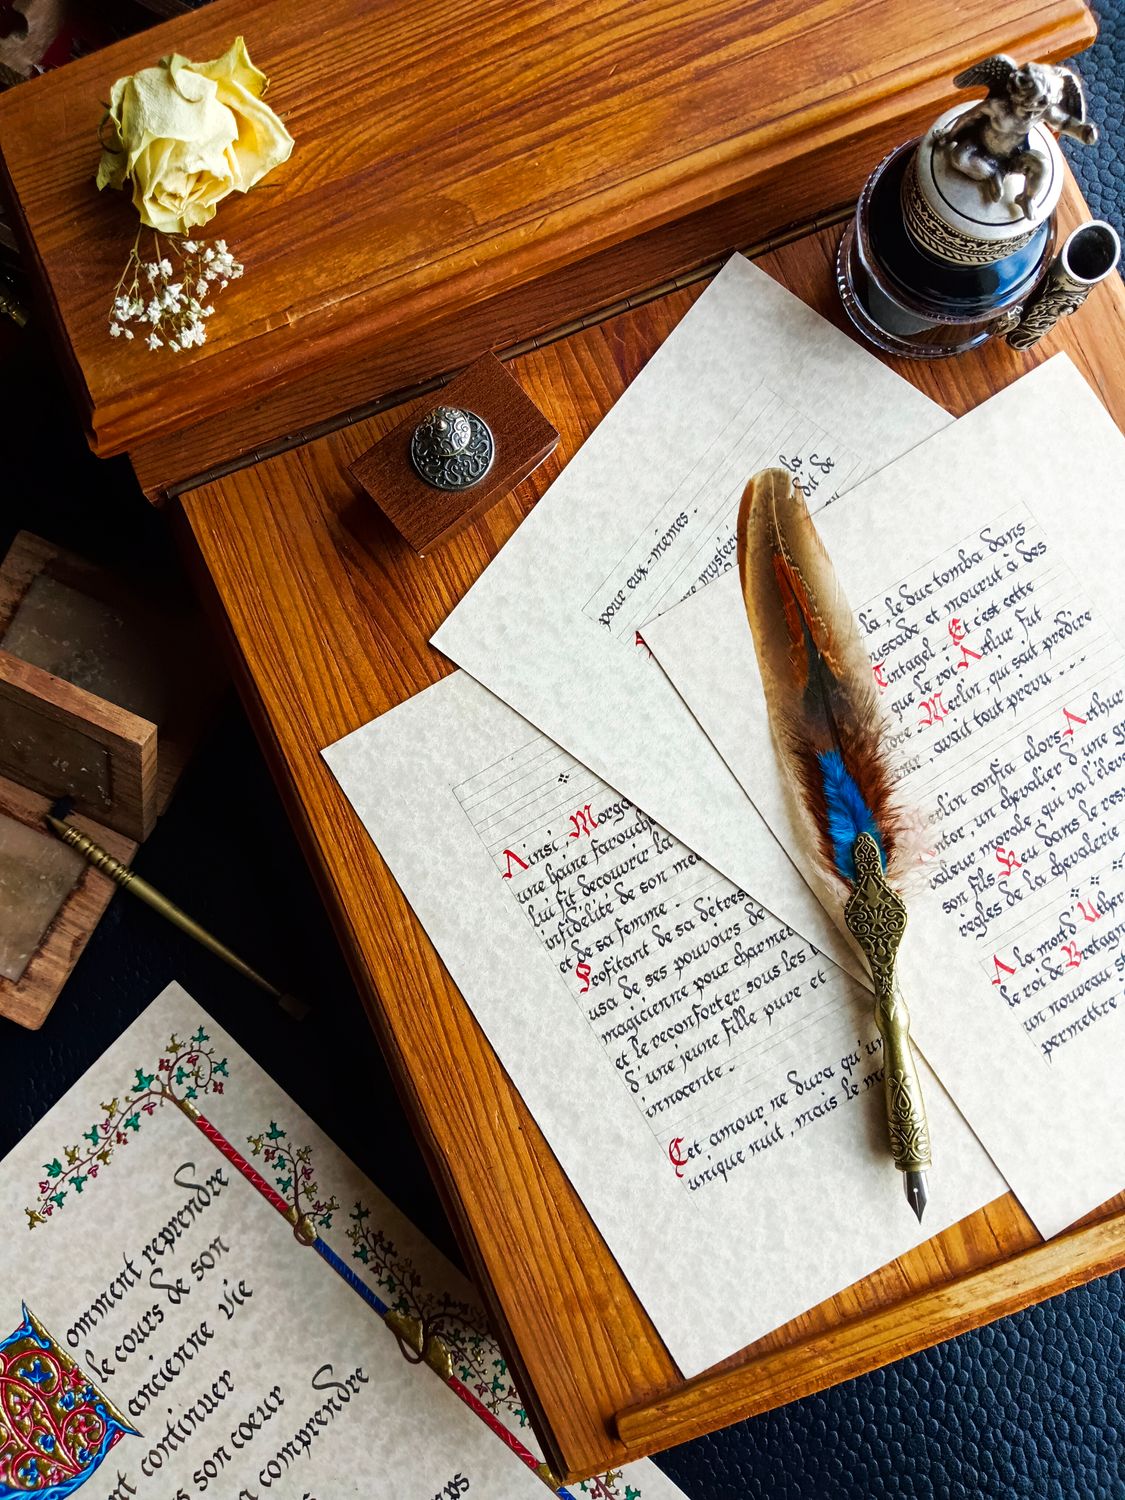 la
dit de
pour eux-mêmes.
là, le duc tomba dans
et mourut à des
Tintagel. Et c'est cette
que le roi Arthur fut
Merlin, qui sait prédire
, avait tout prévu ...
Merlin confia alors Arthur
Antor, un chevalier d'une
valeur morale, qui va l'élever
son fils Keu dans le
règles de la chevalerie
A la mort d'Uther
le roi de Bretagne
un nouveau
permettre
Ainsi, Morga
une haine farouche
lui fit découvrir la
infidélité de son
et de sa femme.
Profitant de sa détres
usa de ses pouvoirs de
magicienne pour charmer
et le réconforter sous les
d'une jeune fille pure et
innocente.
Cet amour ne dura qu'un
unique nuit, mais le
omment reprendre
le cours de son
ancienne vie
continuer
son coeur
comprendre